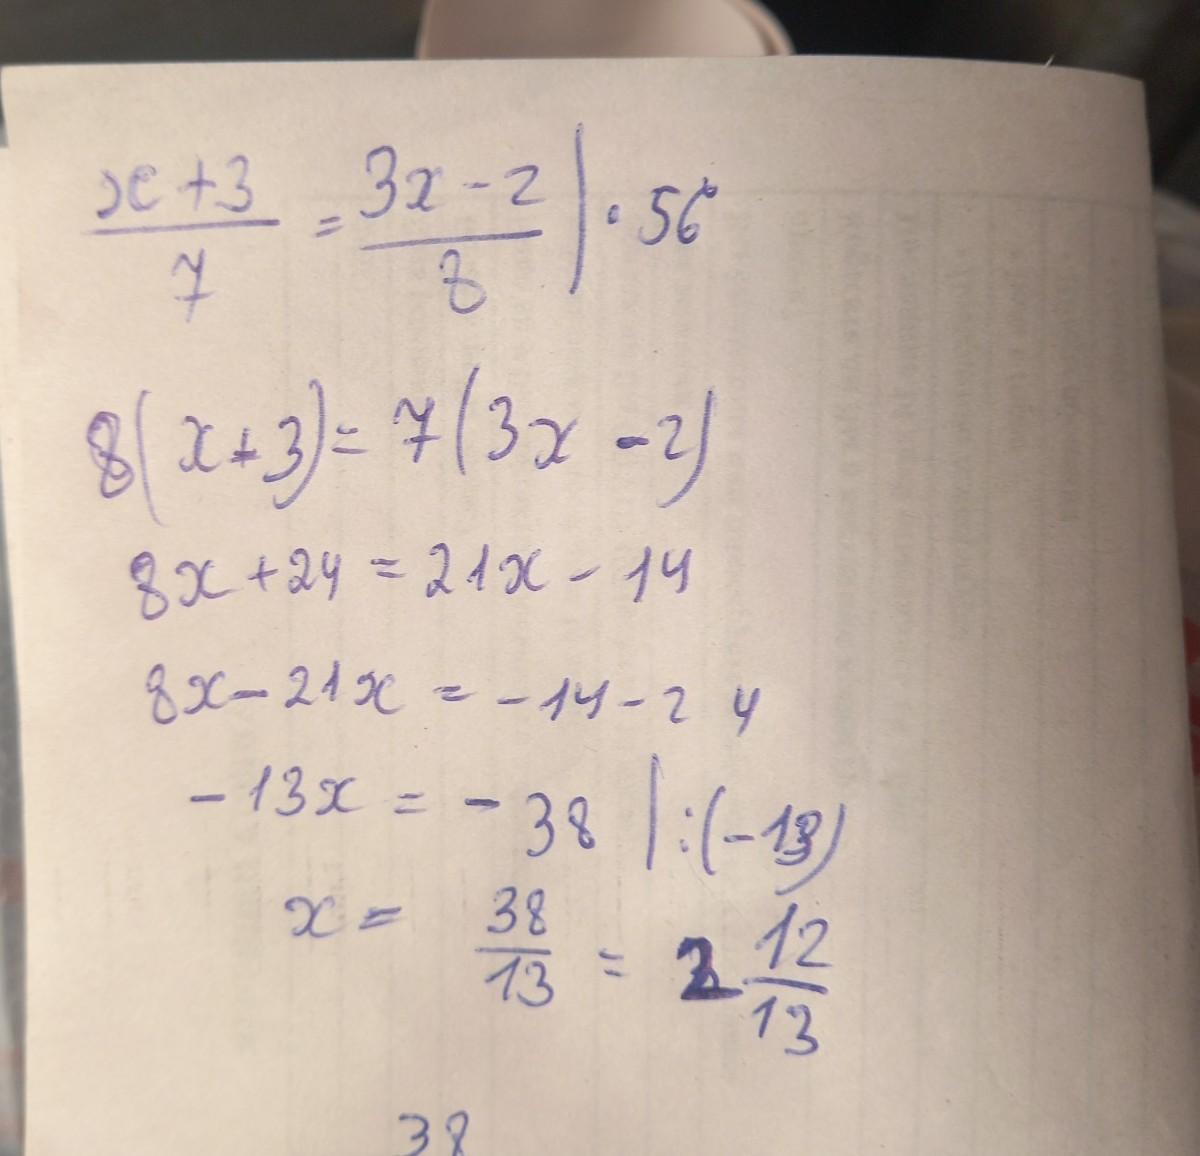 (x+3)/7 = (3x-2)/8 | · 56
8(x+3) = 7(3x-2)
8x+24 = 21x-14
8x-21x = -14-24
-13x = -38 | :(-13)
x = 38/13 = 2 12/13
38